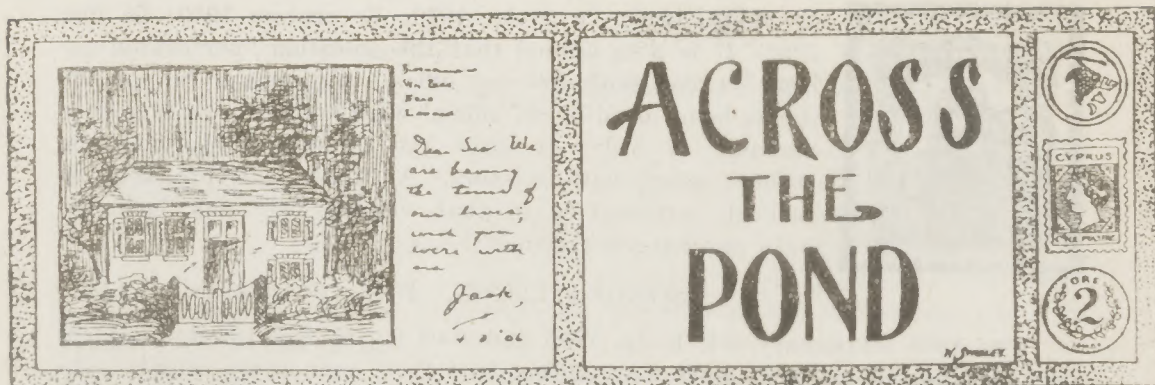 Dear Sir We
are having
the time of
our lives,
wish you
were with
us
Jack,
ACROSS
THE
POND
CYPRUS
ORE
2